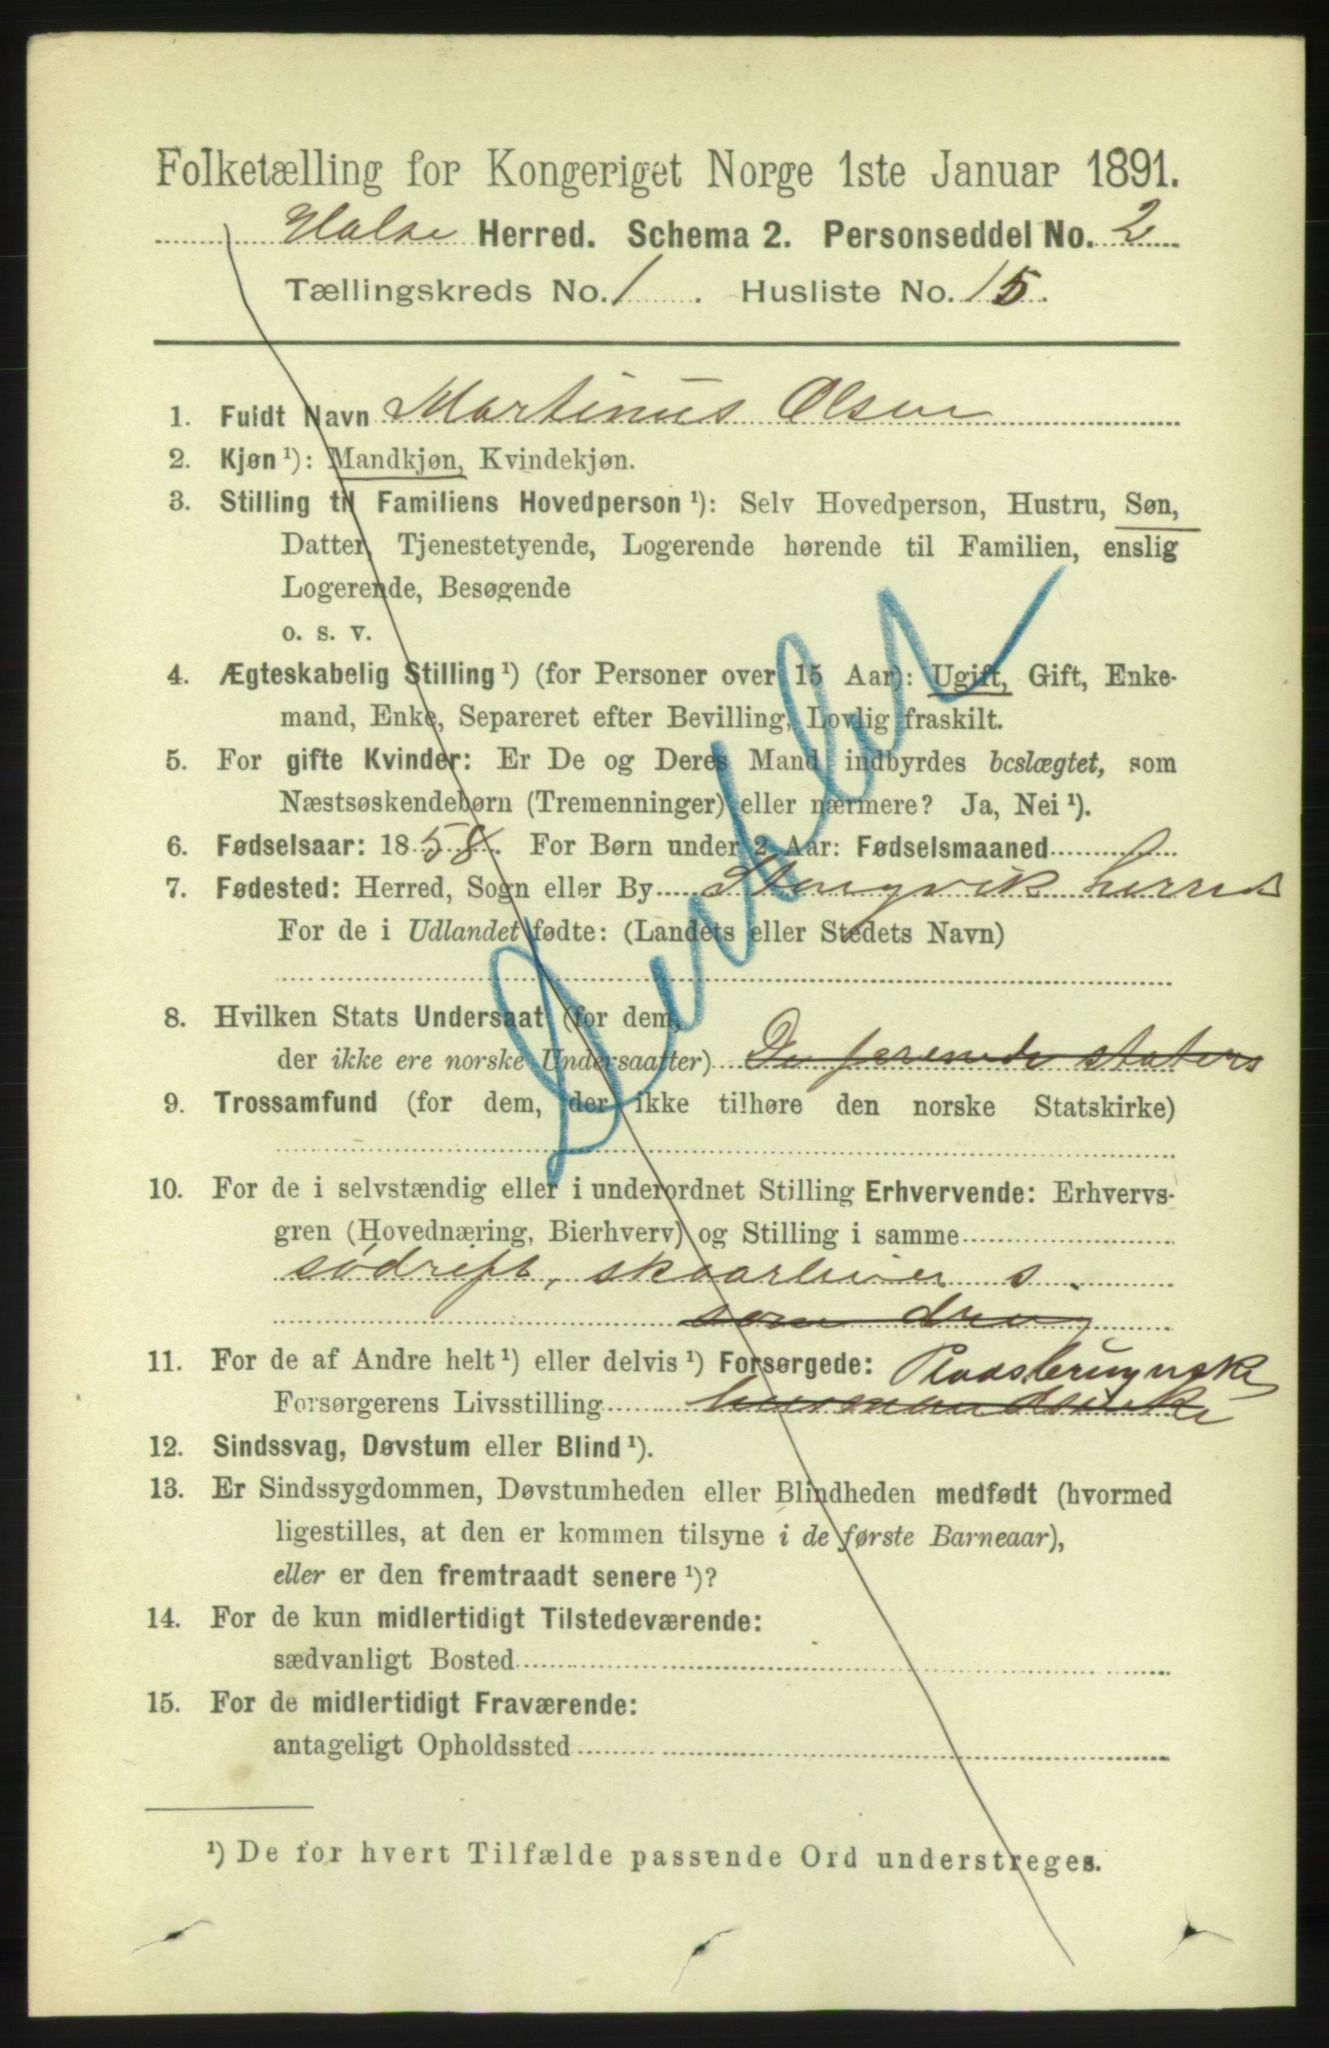 Folketælling for Kongeriget Norge 1ste Januar 1891.
Halse Herred. Schema 2. Personseddel No. 2
Tællingskreds No. 1. Husliste No. 15.
1. Fuldt Navn Martinus Olsen
2. Kjøn ¹): Mandkjøn, Kvindekjøn.
3. Stilling til Familiens Hovedperson ¹): Selv Hovedperson, Hustru, Søn,
Datter, Tjenestetyende, Logerende hørende til Familien, enslig
Logerende, Besøgende
o. s. v.
4. Ægteskabelig Stilling ¹) (for Personer over 15 Aar): Ugift, Gift, Enke-
mand, Enke, Separeret efter Bevilling, Lovlig fraskilt.
5. For gifte Kvinder: Er De og Deres Mand indbyrdes beslægtet, som
Næstsøskendebørn (Tremenninger) eller nærmere? Ja, Nei ¹).
6. Fødselsaar: 1858. For Børn under 2 Aar: Fødselsmaaned
7. Fødested: Herred, Sogn eller By Stangvik herred
For de i Udlandet fødte: (Landets eller Stedets Navn)
8. Hvilken Stats Undersaat (for dem,
der ikke ere norske Undersaatter) De forenede staters
9. Trossamfund (for dem, der ikke tilhøre den norske Statskirke)
10. For de i selvstændig eller i underordnet Stilling Erhvervende: Erhvervs-
gren (Hovednæring, Bierhverv) og Stilling i samme
som dreng
11. For de af Andre helt ¹) eller delvis ¹) Forsørgede:
Forsørgerens Livsstilling
12. Sindssvag, Døvstum eller Blind ¹).
13. Er Sindssygdommen, Døvstumheden eller Blindheden medfødt (hvormed
ligestilles, at den er kommen tilsyne i de første Barneaar),
eller er den fremtraadt senere ¹)?
14. For de kun midlertidigt Tilstedeværende:
sædvanligt Bosted
15. For de midlertidigt Fraværende:
antageligt Opholdssted
¹) De for hvert Tilfælde passende Ord understreges.